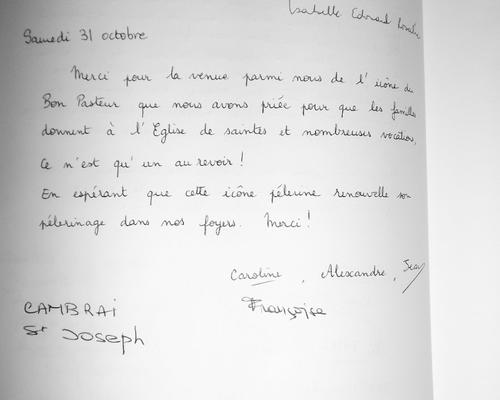 Isabelle Edouard
Samedi 31 octobre
Merci pour la venue parmi nous de l' icône du
Bon Pasteur que nous avons priée pour que les familles
donnent à l' Eglise de saintes et nombreuses vocations,
Ce n'est qu'un au revoir !
En espérant que cette icône pélerine renouvelle son
pélerinage dans nos foyers. Merci !
Caroline, Alexandre, Jean
Françoise
CAMBRAI
St Joseph